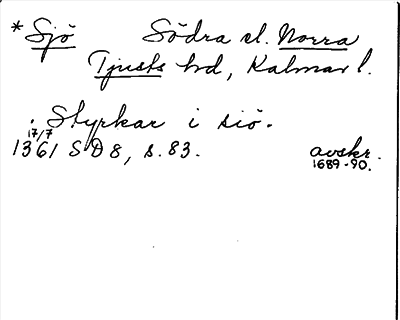 * Sjö Södra el. Norra
Tjusts hd, Kalmar l.
. Styrkar i siö.
17/7
1361 SD 8, s. 83. avskr.
1689-90.